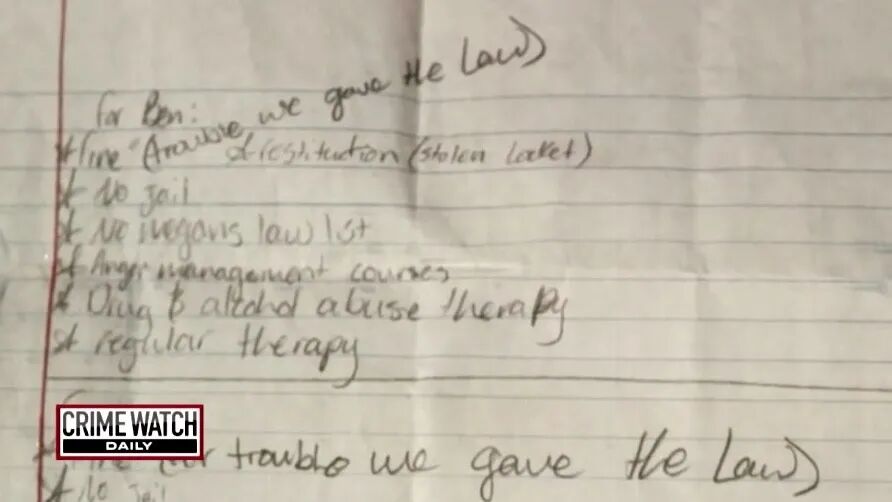 for Ben:
* fine (trouble we gave the Law)
& restitution (stolen locket)
* No jail
* No megans law lst
* Anger management courses
* Drug & alcohol abuse therapy
* regular therapy
CRIME WATCH
DAILY
trouble we gave the Law)
* No jail